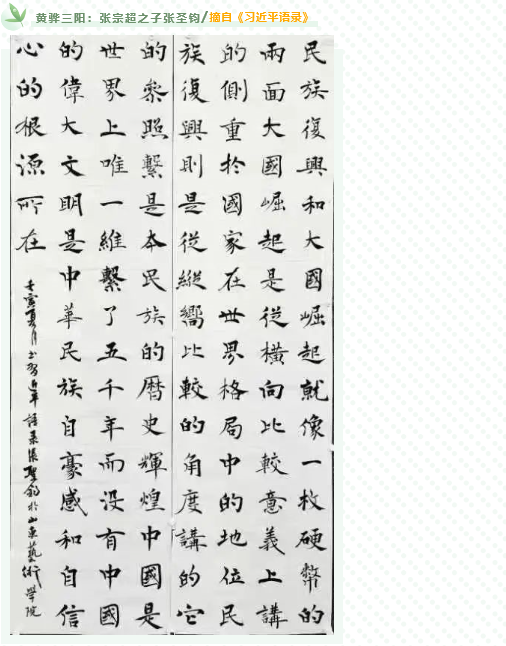 黄骅三阳：张宗超之子张圣钧/摘自《习近平语录》
民族復興和大國崛起就像一枚硬幣的
兩面大國崛起是從横向比較意義上講
的側重於國家在世界格局中的地位民
族復興則是從縱嚮比較的角度講的它
的參照繫是本民族的曆史輝煌中國是
世界上唯一維繫了五千年而没有中國
的偉大文明是中華民族自豪感和自信
心的根源所在
壬寅夏月书習近平語录張聖鈞於山東藝術學院